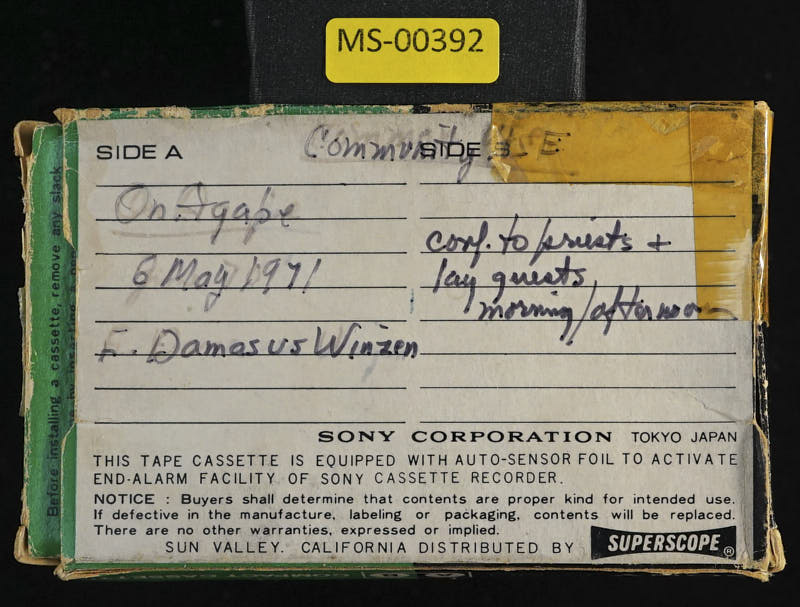 MS-00392
SIDE A
Community
SIDE B
On Agape
6 May 1971
F. Damasus Winzen
conf. to priests +
lay guests
morning/afternoon
SONY CORPORATION TOKYO JAPAN
THIS TAPE CASSETTE IS EQUIPPED WITH AUTO-SENSOR FOIL TO ACTIVATE
END-ALARM FACILITY OF SONY CASSETTE RECORDER.
NOTICE : Buyers shall determine that contents are proper kind for intended use.
If defective in the manufacture, labeling or packaging, contents will be replaced.
There are no other warranties, expressed or implied.
SUN VALLEY. CALIFORNIA DISTRIBUTED BY SUPERSCOPE®
Before installing a cassette, remove any slack